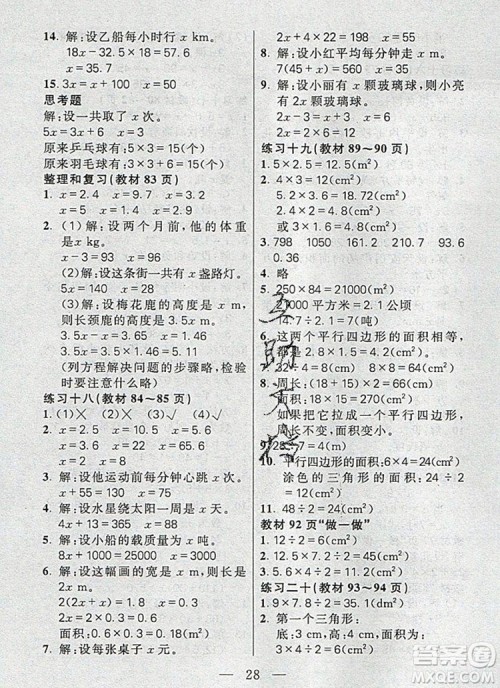 14. 解:设乙船每小时行 x km。
18x-x×13=57.6
x=35.7
15. 3x=x+100 x=50
思考题
解:设一共取了 x 次。
5x=3x+6 x=3
原来乒乓球有:5×3=15(个)
原来羽毛球有:3×3+6=15(个)
整理和复习(教材 83 页)
1. x=0.8 x=9.4 x=3.2
x=5 x=0.9 x=2.4
2. (1)解:设两个月前,他的体重
是 x kg。
x-3=93 x=96
(2)解:设这条街一共有 x 盏路灯。
5x=140 x=28
(3)解:设梅花鹿的高度是 x m,
则长颈鹿的高度是 3.5x m。
3.5x-x=3.65 x=1.46
(列方程解决问题的步骤略,检验
时要注意什么略)
练习十八(教材 84~85 页)
1. (1)× (2)× (3)√ (4)√
2. x=7 x=0.3 x=15.6
x=23 x=8 x=0.6
3. 解:设他运动前每分钟心跳 x 次。
x+55=130 x=75
4. 解:设水星绕太阳一周是 x 天。
4x+13=365 x=88
5. 解:设小船的载质量为 x 吨。
9x=x+24000 x=3000
6. 解:设这幅画的宽是 x m,则长
是 2x m。
2(2x+x)=1.8 x=0.3
2x=2×0.3=0.6
面积:0.6×0.3=0.18(m²)
7. 解:设每张桌子 x 元。
2x+4×58=324 x=46
8. 解:设小红平均每分钟走 x m。
7(45+x)=560 x=35
9. 解:设小丽有 x 颗玻璃球,则小亮
有 2x 颗玻璃球。
2x-3=x+3 x=6 2x=12
练习十九(教材 89~90 页)
1. 5×2.5=12.5(m²)
2. 3×4=12(cm²)
5.2×2.4=12.48(cm²)
或 3×2=6(cm²)
3. 798 1050 161.2 110.7 9
0.36
4. 略
5. 250×84=21000(m²)
21000 平方米=2.1 公顷
14.7÷2.1=7(吨)
6. 这两个平行四边形的面积相等,
都是:2.8×1.5=4.2(cm²)
7. 32÷4=8(cm) 8×8=64(cm²)
如果把它拉成一个平行四边形,
周长不变,面积变小。
10. 平行四边形的面积:6×4=24(m²)
涂色的三角形的面积:
24÷2=12(m²)
11. 48÷2=24(cm²)
教材 92 页“做一做”
1. 12÷2=6(cm²)
2. 12.5×7.4÷2=46.25(cm²)
3. 2.6×4÷2=5.2(cm²)
练习二十(教材 93~94 页)
1. 9×7.8÷2=35.1(dm²)
2. 第一个三角形:
底:3 cm,高:4 cm,
面积:3×4÷2=6(cm²)
28
作业帮
MXQE.COM